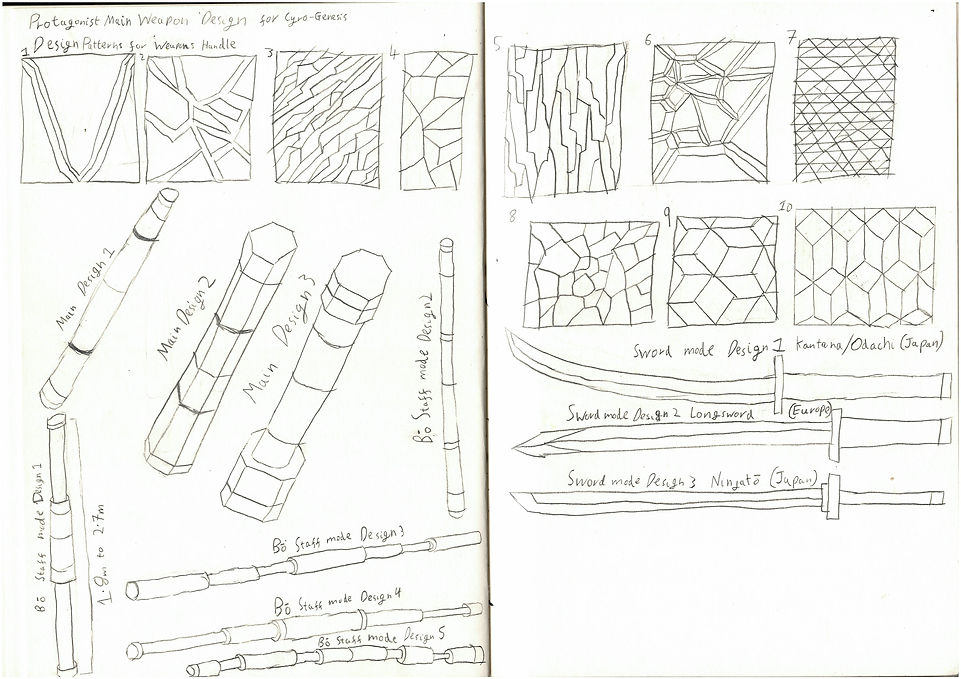 Protagonist Main Weapon Design for Cyro-Genesis
Design Patterns for Weapons Handle
1
2
3
4
5
6
7
8
9
10
Main Design 1
Main Design 2
Main Design 3
Bō Staff mode Design 2
Bō Staff mode Design 1
1.8m to 2.7m
Bō Staff mode Design 3
Bō Staff mode Design 4
Bō Staff mode Design 5
Sword mode Design 1 Kantana/Odachi (Japan)
Sword mode Design 2 Longsword (Europe)
Sword mode Design 3 Ninjatō (Japan)